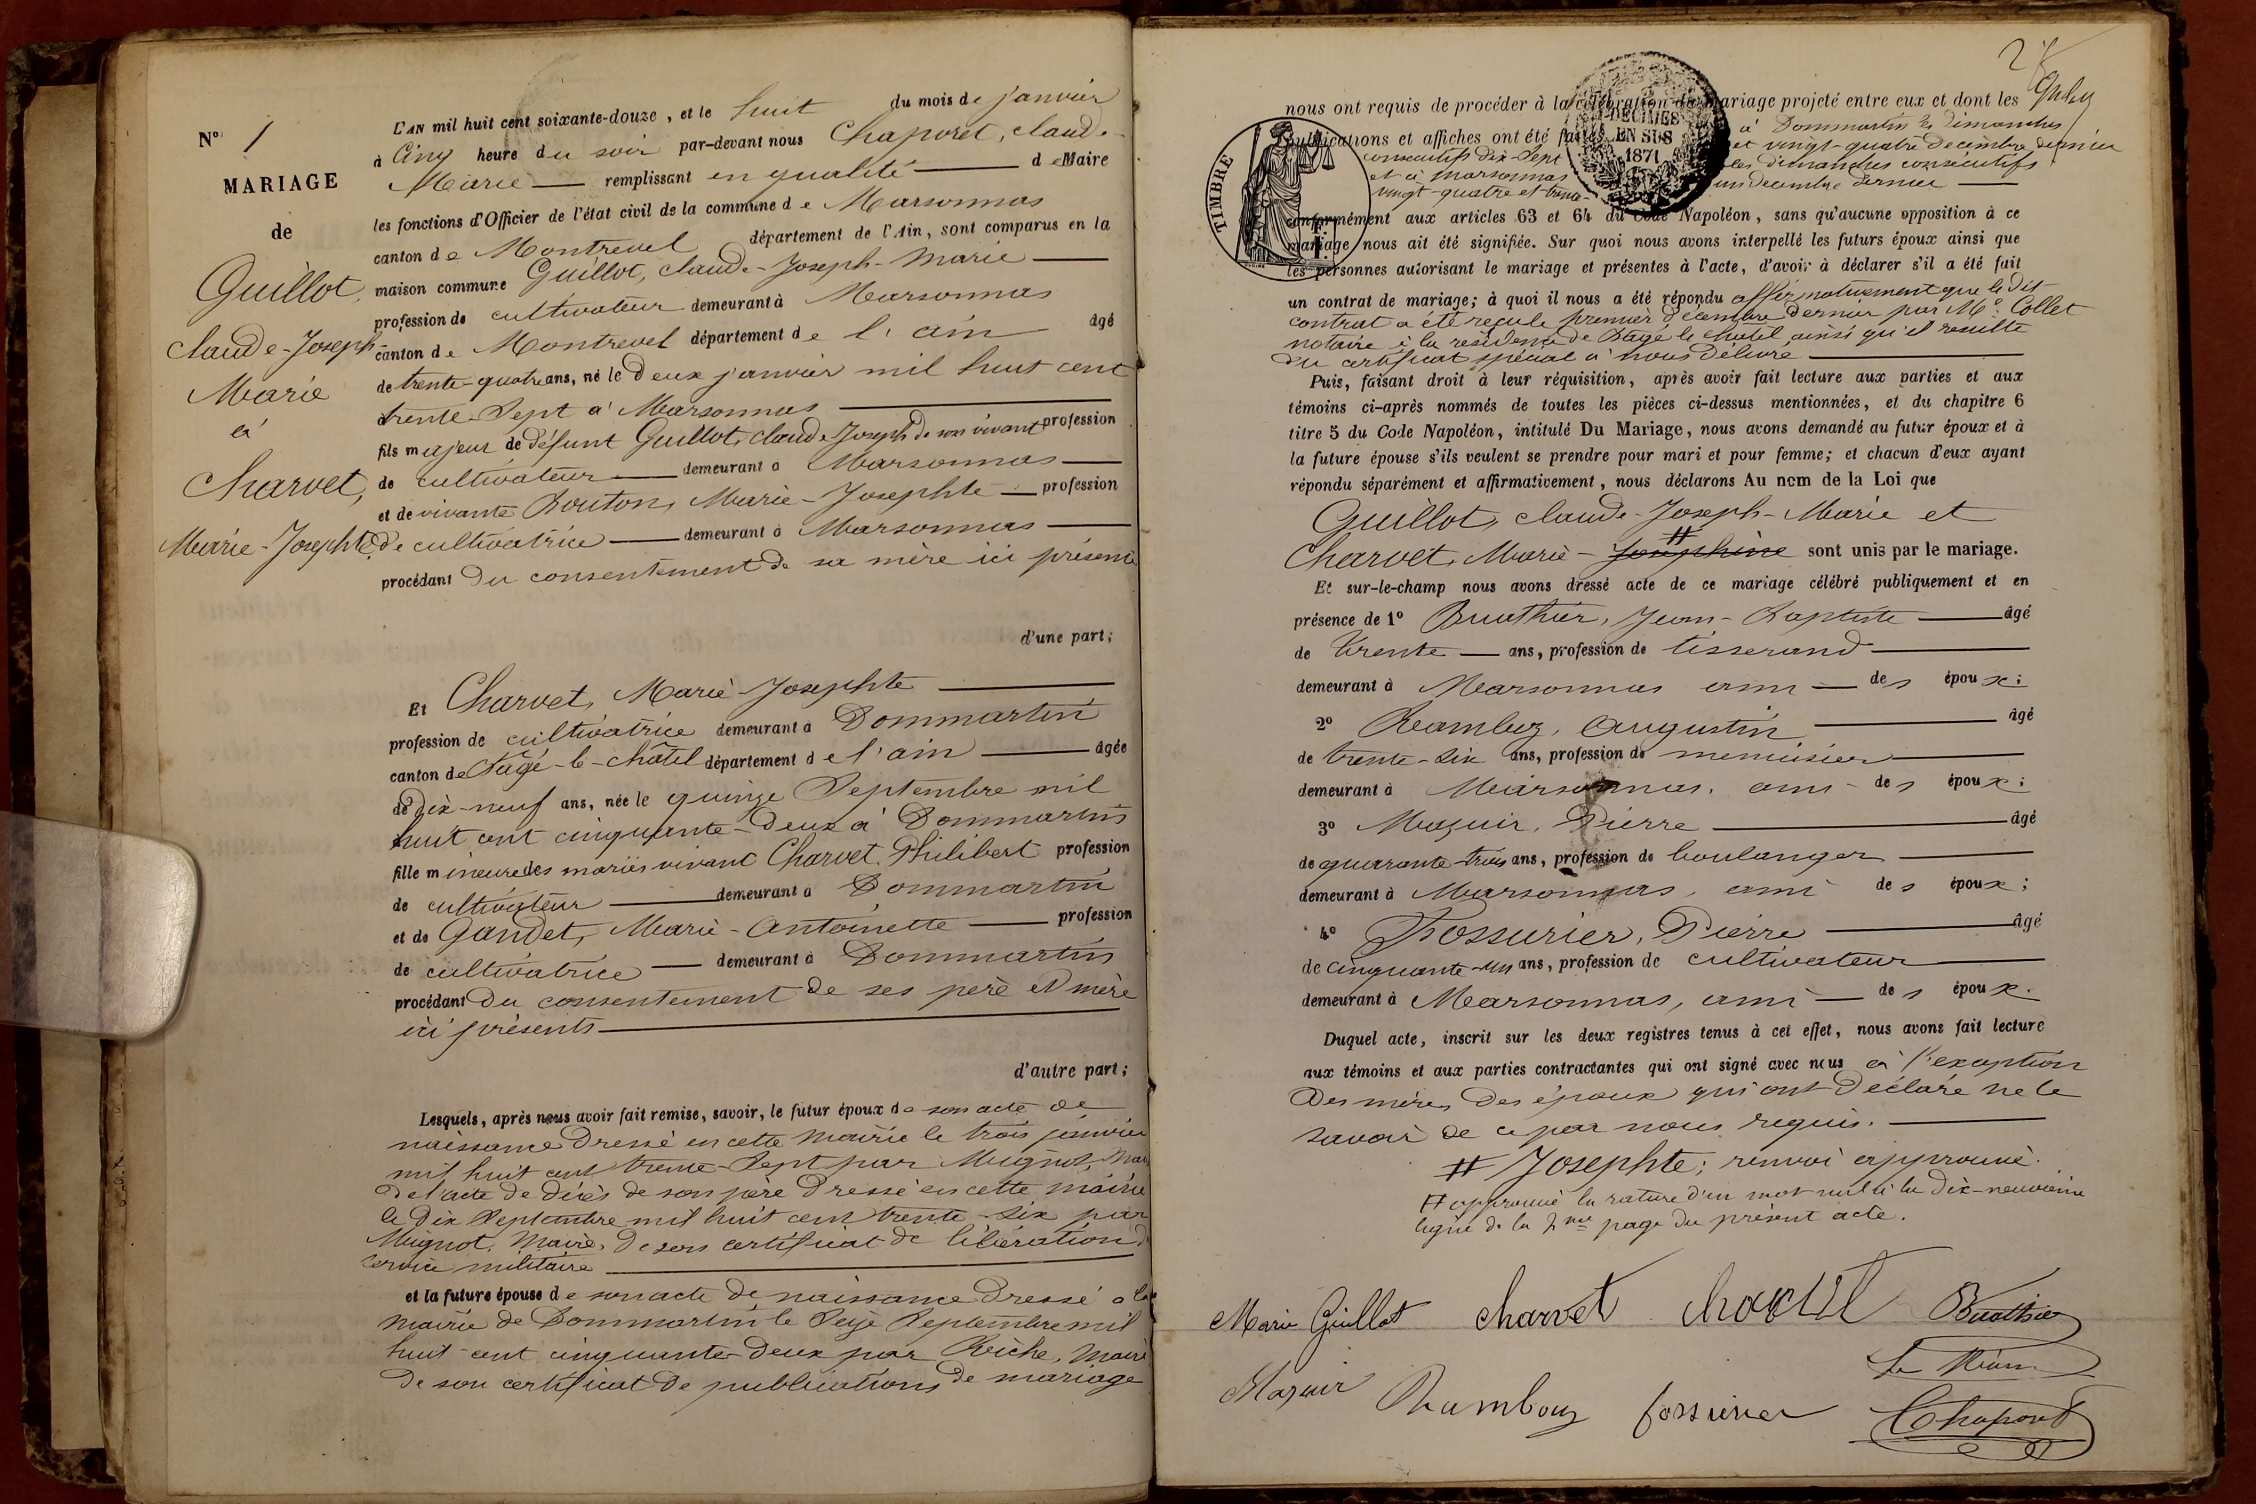 N° 1
MARIAGE
de
Guillot,
Claude-Joseph-
Marie
à
Charvet,
Marie-Josephte
L'AN mil huit cent soixante-douze, et le huit du mois de janvier
à cinq heure du soir par-devant nous Chaponet, Claude-
Marie — remplissant en qualité — de Maire
les fonctions d'Officier de l'état civil de la commune de Marsonnas
canton de Montrevel département de l'Ain, sont comparus en la
maison commune Guillot, Claude-Joseph-Marie —
profession de cultivateur demeurant à Marsonnas
canton de Montrevel département de l'ain âgé
de trente-quatre ans, né le deux janvier mil huit cent
trente-Sept à Marsonnas —
fils majeur de défunt Guillot, Claude Joseph de son vivant profession
de cultivateur — demeurant à Marsonnas —
et de vivante Bouton, Marie-Josephte — profession
de cultivatrice — demeurant à Marsonnas —
procédant du consentement de sa mère ici présente
d'une part;
Et Charvet, Marie Josephte —
profession de cultivatrice demeurant à Dommartin
canton de Bâgé-le-Châtel département de l'ain — âgée
de dix-neuf ans, née le quinze Septembre mil
huit cent cinquante-deux à Dommartin
fille mineure des mariés vivant Charvet, Philibert profession
de cultivateur — demeurant à Dommartin
et de Gandet, Marie-Antoinette — profession
de cultivatrice — demeurant à Dommartin
procédant du consentement de ses père et mère
ici présents —
d'autre part;
Lesquels, après nous avoir fait remise, savoir, le futur époux de son acte de
naissance dressé en cette mairie le trois janvier
mil huit cent trente-Sept par Mugnot, Maire
de l'acte de décès de son père dressé en cette mairie
le dix Septembre mil huit cent trente-six par
Mugnot, Maire, de son certificat de libération du
service militaire —
et la future épouse de son acte de naissance dressé à la
mairie de Dommartin le Seize Septembre mil
huit-cent cinquante-deux par Reiche, Maire
de son certificat de publications de mariage
2
nous ont requis de procéder à la célébration du mariage projeté entre eux et dont les
publications et affiches ont été faites à Dommartin les dimanches
consécutifs dix-Sept et vingt-quatre décembre dernier
et à Marsonnas les dimanches consécutifs
vingt-quatre et trente-un décembre dernier —
TIMBRE
2 DECIMES
EN SUS
1871
conformément aux articles 63 et 64 du Code Napoléon, sans qu'aucune opposition à ce
mariage nous ait été signifiée. Sur quoi nous avons interpellé les futurs époux ainsi que
les personnes autorisant le mariage et présentes à l'acte, d'avoir à déclarer s'il a été fait
un contrat de mariage; à quoi il nous a été répondu affirmativement que le dit
contrat a été reçu le premier décembre dernier par Me. Collet
notaire à la résidence de Bâgé le Châtel, ainsi qu'il résulte
du certificat spécial à nous délivré —
Puis, faisant droit à leur réquisition, après avoir fait lecture aux parties et aux
témoins ci-après nommés de toutes les pièces ci-dessus mentionnées, et du chapitre 6
titre 5 du Code Napoléon, intitulé Du Mariage, nous avons demandé au futur époux et à
la future épouse s'ils veulent se prendre pour mari et pour femme; et chacun d'eux ayant
répondu séparément et affirmativement, nous déclarons Au nom de la Loi que
Guillot, Claude-Joseph-Marie et
Charvet, Marie-Joséphine # sont unis par le mariage.
Et sur-le-champ nous avons dressé acte de ce mariage célébré publiquement et en
présence de 1° Buathier, Jean-Baptiste — âgé
de trente — ans, profession de tisserand —
demeurant à Marsonnas ami — des époux;
2° Rambuz, Augustin — âgé
de trente-six ans, profession de menuisier —
demeurant à Marsonnas, ami - des époux;
3° Mazuir, Pierre — âgé
de quarante-trois ans, profession de boulanger —
demeurant à Marsonnas, ami des époux;
4° Fossurier, Pierre — âgé
de cinquante-un ans, profession de cultivateur —
demeurant à Marsonnas, ami — des époux.
Duquel acte, inscrit sur les deux registres tenus à cet effet, nous avons fait lecture
aux témoins et aux parties contractantes qui ont signé avec nous à l'exception
des mères des époux qui ont déclaré ne le
savoir de ce par nous requis. —
# Josephte; renvoi approuvé.
# approuvé la rature d'un mot nul à la dix-neuvième
ligne de la 2me page du présent acte.
Marie Guillot charvet charvet Buathier
Le Maire
Mazuir Rambouz fossurier Chaponet